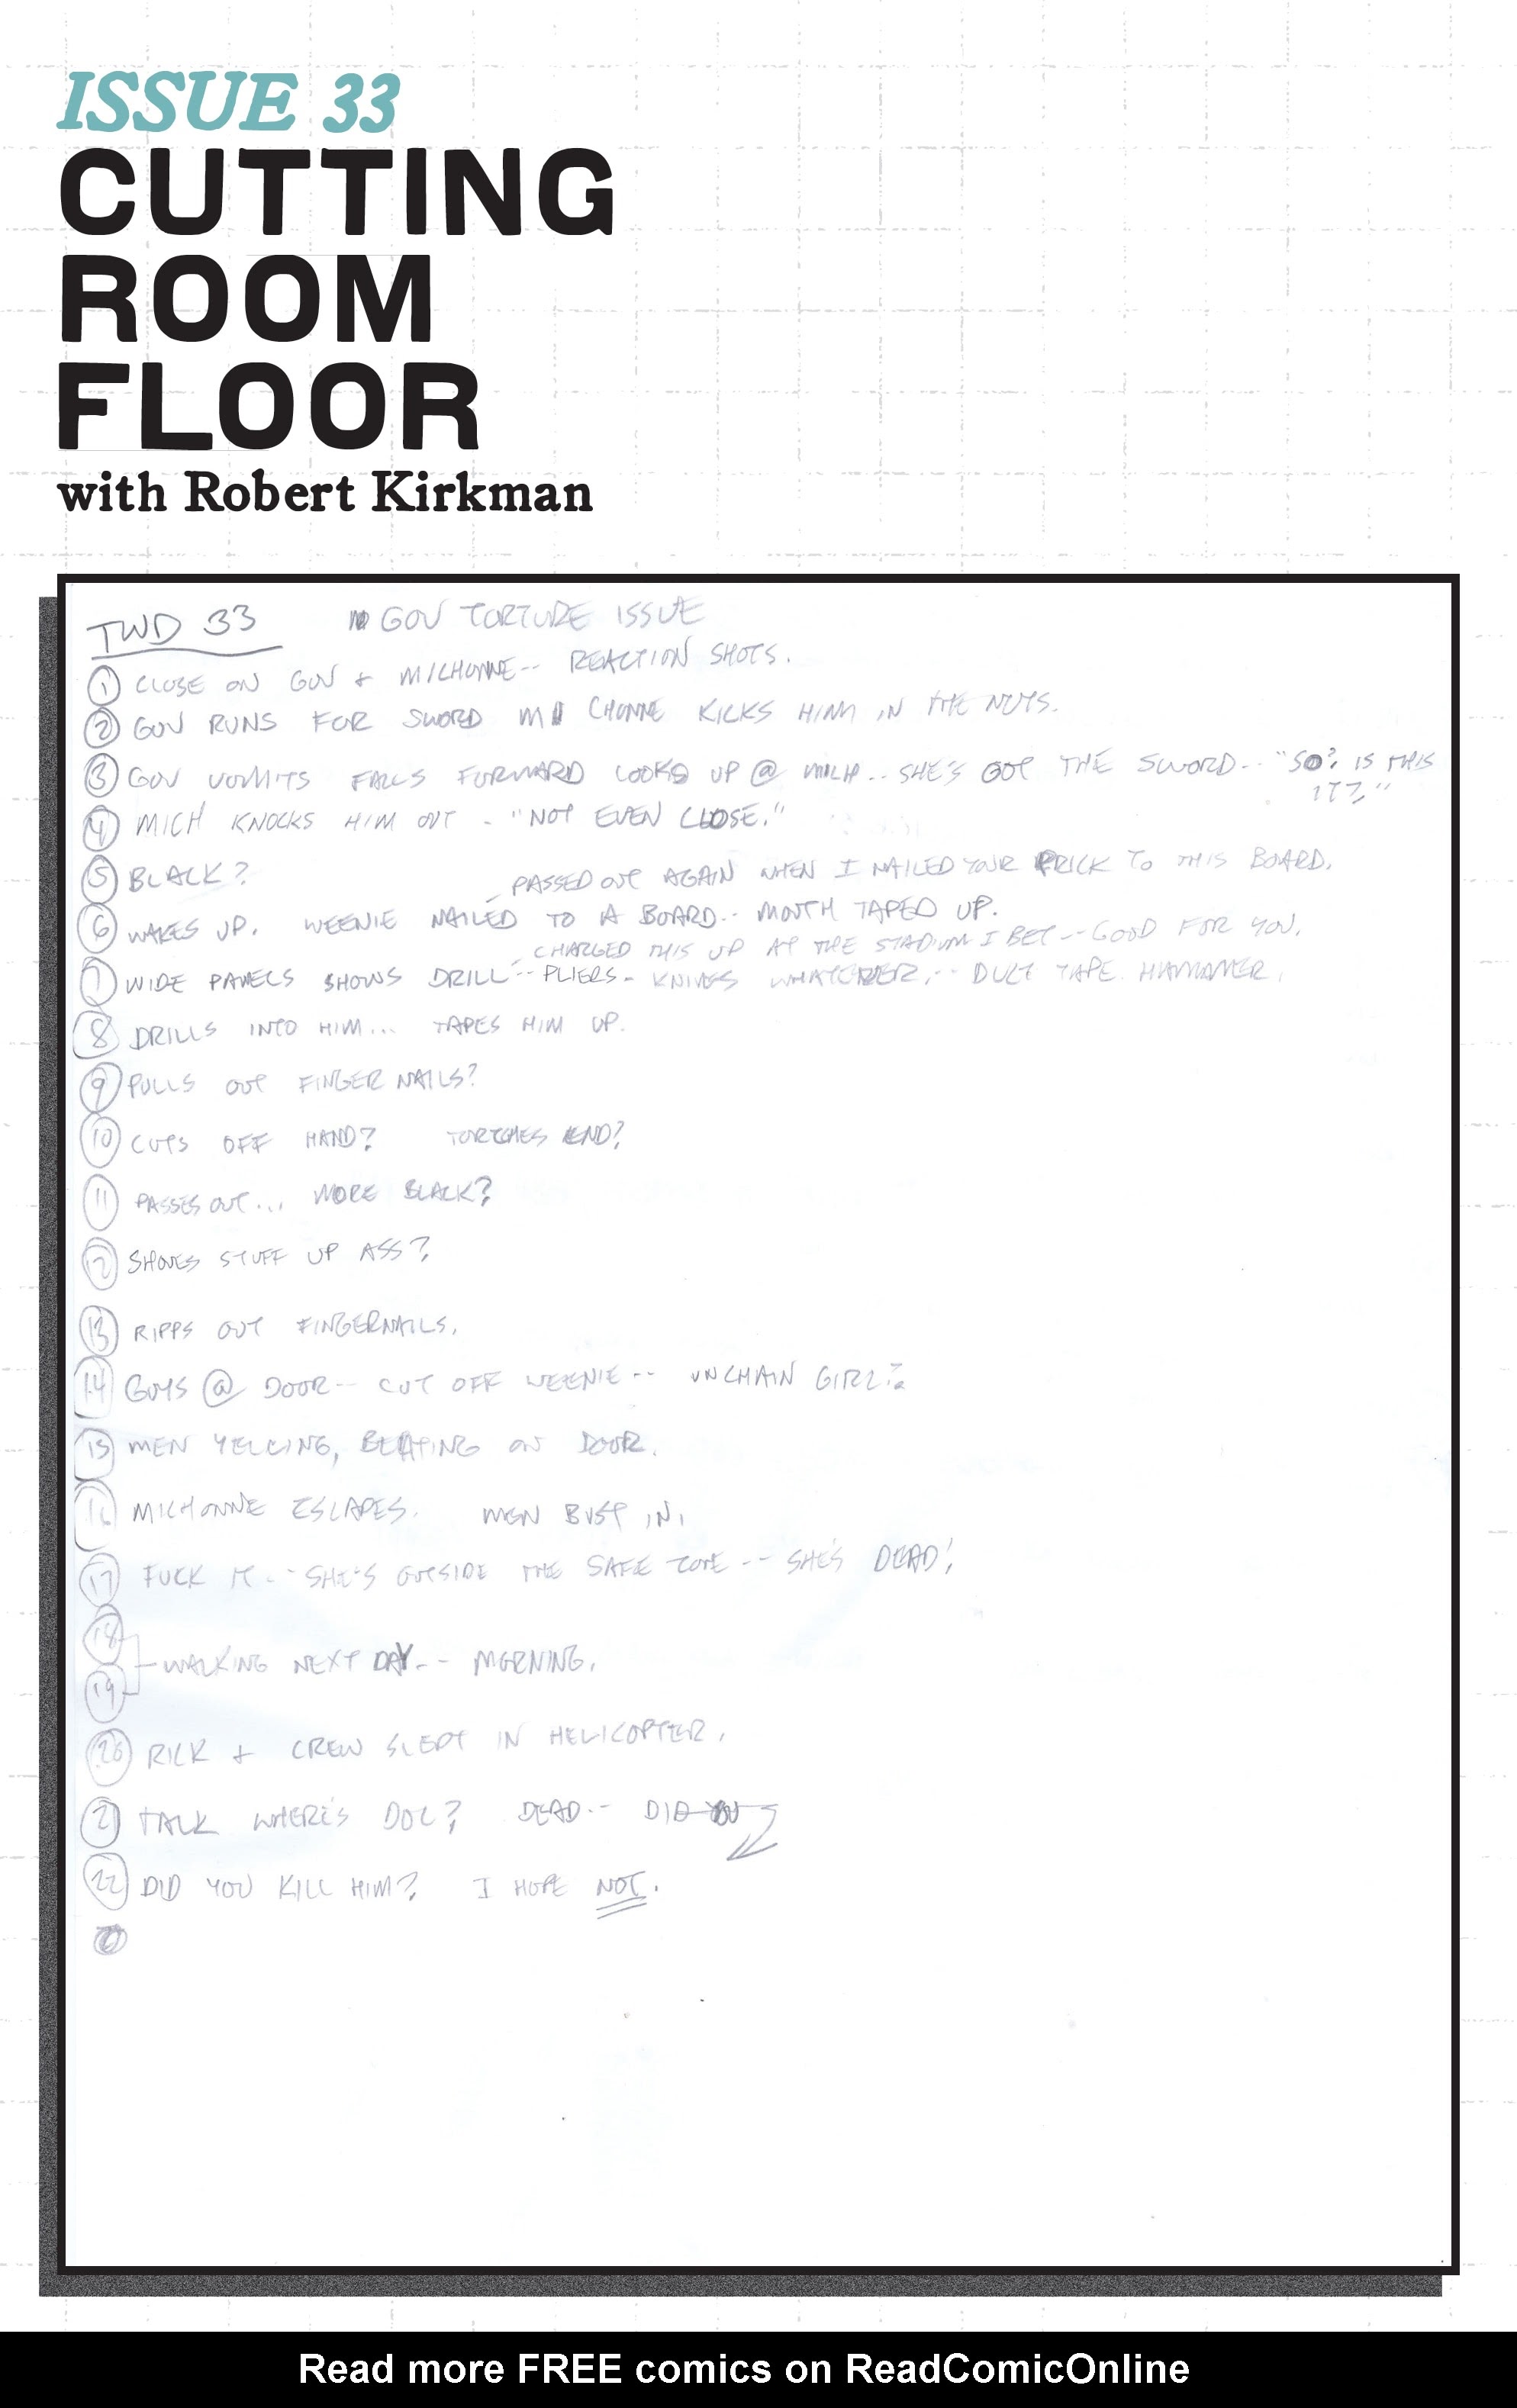 ISSUE 33
CUTTING
ROOM
FLOOR
with Robert Kirkman
TWD 33 GOV TORTURE ISSUE
① CLOSE ON GOV + MICHONNE-- REACTION SHOTS.
② GOV RUNS FOR SWORD MICHONNE KICKS HIM IN THE NUTS.
③ GOV VOMITS FALLS FORWARD LOOKS UP @ MICH.. SHE'S GOT THE SWORD-- "SO? IS THIS
IT?"
④ MICH KNOCKS HIM OUT - "NOT EVEN CLOSE."
⑤ BLACK?
PASSED OUT AGAIN WHEN I NAILED YOUR PRICK TO THIS BOARD.
⑥ WAKES UP. WEENIE NAILED TO A BOARD-- MOUTH TAPED UP.
CHARGED THIS UP AT THE STADIUM I BET -- GOOD FOR YOU.
⑦ WIDE PANELS SHOWS DRILL-- PLIERS- KNIVES WHATEVER,-- DUCT TAPE. HAMMER.
⑧ DRILLS INTO HIM... TAPES HIM UP.
⑨ PULLS OUT FINGER NAILS?
⑩ CUTS OFF HAND? TORCHES END?
⑪ PASSES OUT... MORE BLACK?
⑫ SHOVES STUFF UP ASS?
⑬ RIPPS OUT FINGERNAILS.
⑭ GUYS @ DOOR-- CUT OFF WEENIE-- UNCHAIN GIRL?
⑮ MEN YELLING, BEATING ON DOOR.
⑯ MICHONNE ESCAPES. MEN BUST IN.
⑰ FUCK IT-- SHE'S OUTSIDE THE SAFE ZONE -- SHE'S DEAD!
⑱
WALKING NEXT DAY-- MORNING.
⑲
⑳ RICK + CREW SLEPT IN HELICOPTER.
㉑ TALK WHERE'S DOC? DEAD-- DID YOU
㉒ DID YOU KILL HIM? I HOPE NOT.
Read more FREE comics on ReadComicOnline